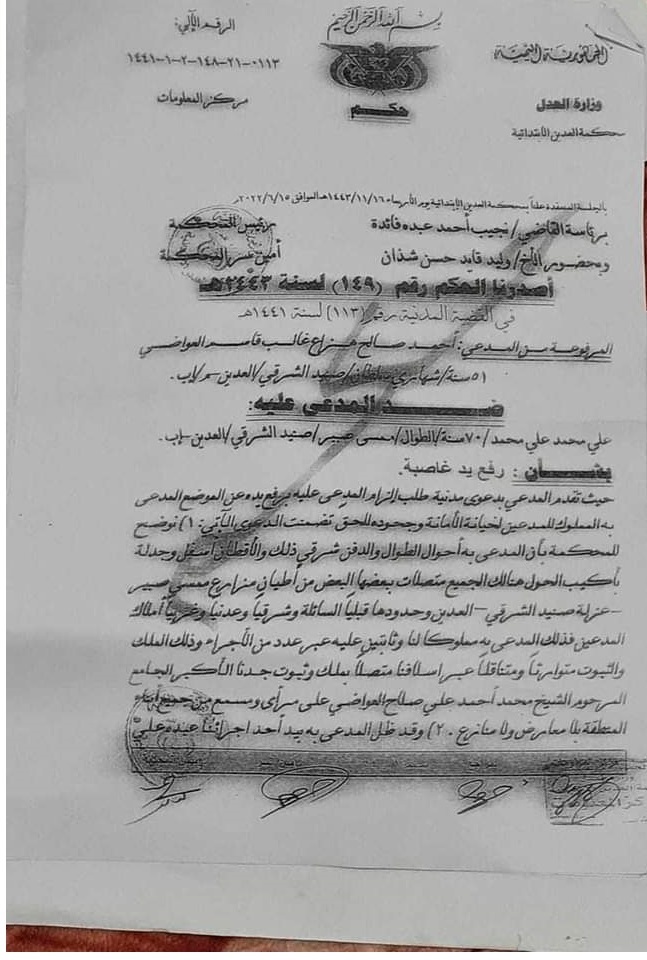 بسم الله الرحمن الرحيم
الجمهورية اليمنية
وزارة العدل
محكمة العدين الابتدائية
حكم
الرقم الآلي:
١٤٤١-١-٢-١٤٨-٢١-٠١١٣
مركز المعلومات
بالجلسة المنعقدة علناً بمحكمة العدين الابتدائية يوم الأربعاء ١٤٤٣/١١/١٦هـ الموافق ٢٠٢٢/٦/١٥م
برئاسة القاضي/ نجيب أحمد عبده فائدة رئيس المحكمة
وبحضور الأخ/ وليد قايد حسن شذان أمين سر المحكمة
أصدرنا الحكم رقم (١٤٩) لسنة ٢٤٤٣هـ
في القضية المدنية رقم (١١٣) لسنة ١٤٤١هـ
المرفوعة من المدعي: أحمد صالح هزاع غالب قاسم العواضي
٥١ سنة/ سلطان/ صنيد الشرقي/ العدين إب.
ضد المدعى عليه:
علي محمد علي محمد/ ٧٠ سنة/ الطوال/ ممسى صبير/ صنيد الشرقي/ العدين-إب.
بشأن: رفع يد غاصبة.
حيث تقدم المدعي بدعوى مدنية طلب إلزام المدعى عليه برفع يده عن الموضع المدعى
به المملوك للمدعين لخيانة الأمانة وجحوده للحق تضمنت الدعوى بالآتي: ١) نوضح
للمحكمة بأن المدعى به أحوال الطوال والدفن شرقي ذلك والأقطان أسفل وجدلة
بأكيب الحول هنالك الجميع متصلات ببعضها البعض من أطيان مزارع ممسى صبير
-عزلة صنيد الشرقي-العدين وحدودها قبلياً السائلة وشرقياً وعدنياً وغربياً أملاك
المدعين فذلك المدعى به مملوكاً لنا وثابتين عليه عبر عدد من الأجراء وذلك الملك
والثبوت متوارثاً ومتناقلاً عبر أسلافنا متصلاً بملك وثبوت جدنا الأكبر الجامع
المرحوم الشيخ محمد أحمد علي صلاح العواضي على مرأى ومسمع من جميع أبناء
المنطقة بلا معارض ولا منازع. ٢) وقد ظل المدعى به بيد أحد اجرائنا عبده علي